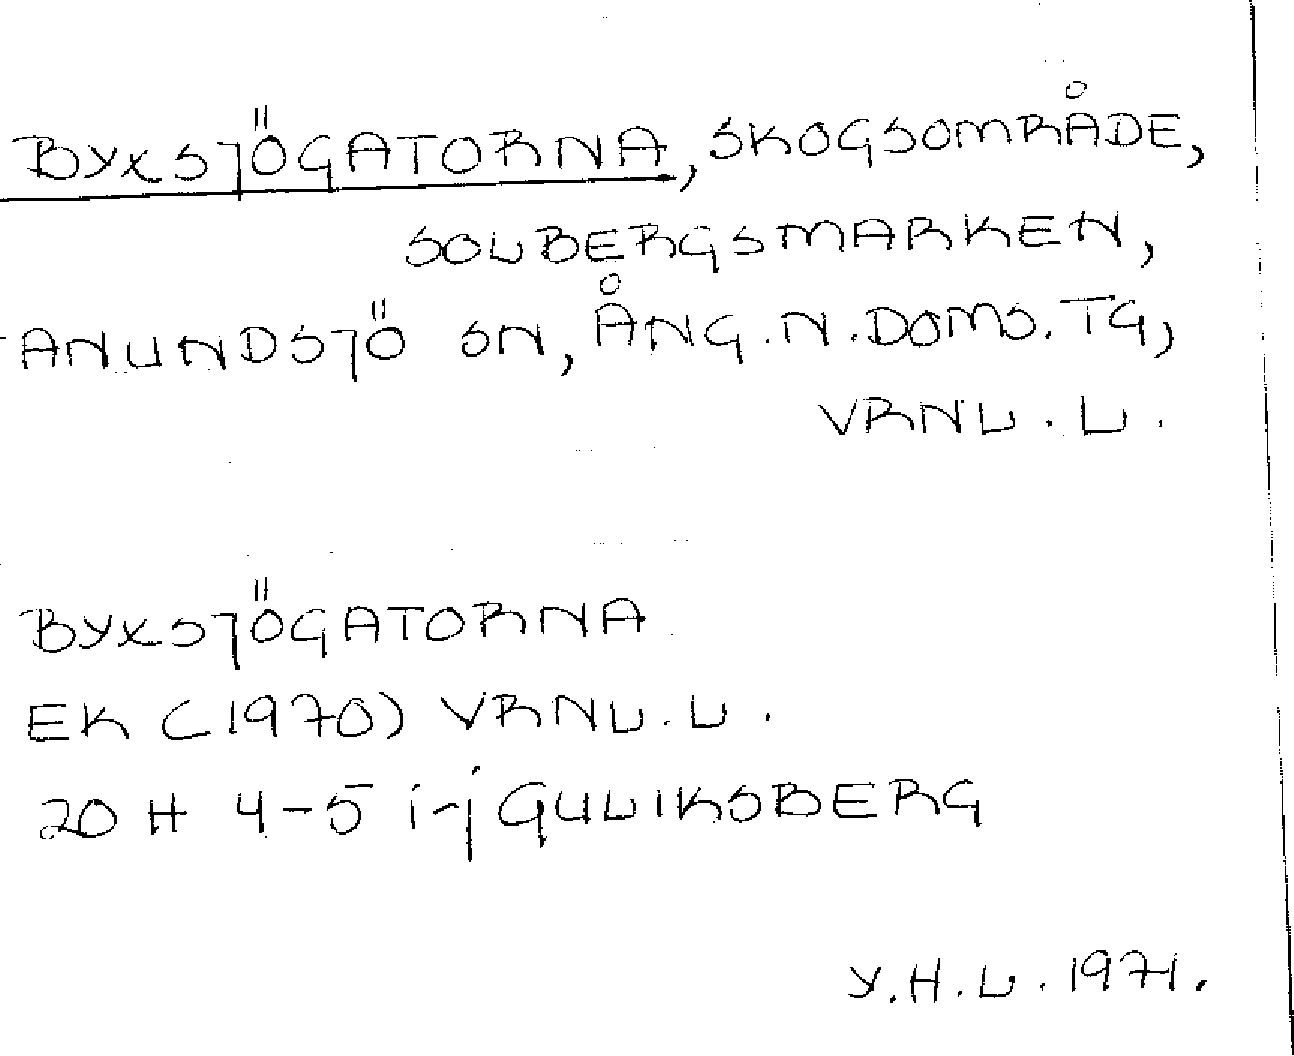 BYXSJÖGATORNA, SKOGSOMRÅDE,
SOLBERGSMARKEN,
ANUNDSJÖ SN, ÅNG.N.DOMS.TG,
VRNL.L.
BYXSJÖGATORNA
EK (1970) VRNL.L.
20 H 4-5 i-j GULIKSBERG
Y.H.L. 1971.